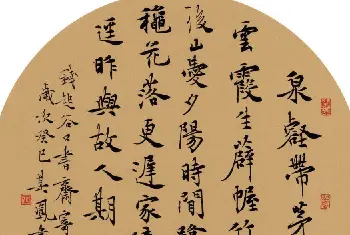 泉壑帶茅
雲霞生薜幄竹
後山愛夕陽時閒
穐花落更遲家
逕昨與故人期
錢起谷口書齋寄
歲次癸巳